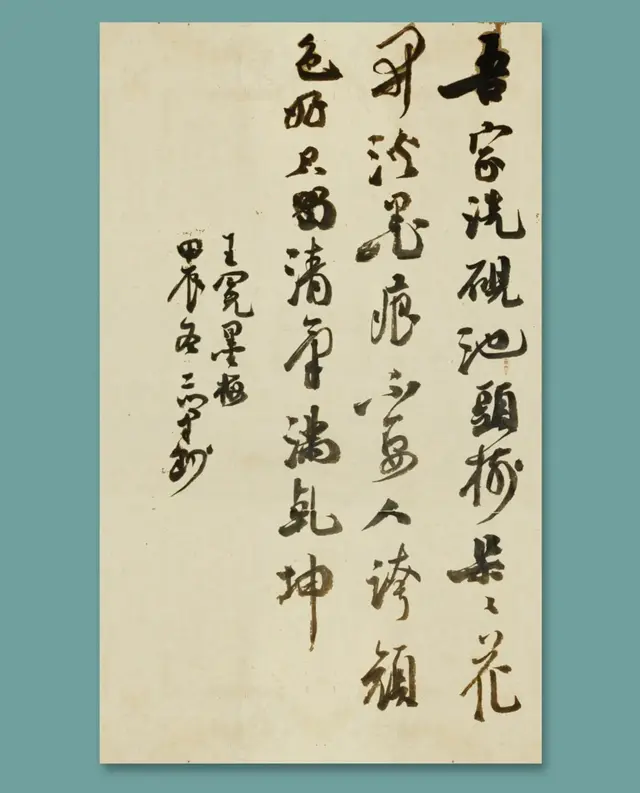 吾家洗硯池頭樹朵々花
開淡墨痕不要人誇顏
色好只留清氣滿乾坤
王冕墨梅
甲辰冬